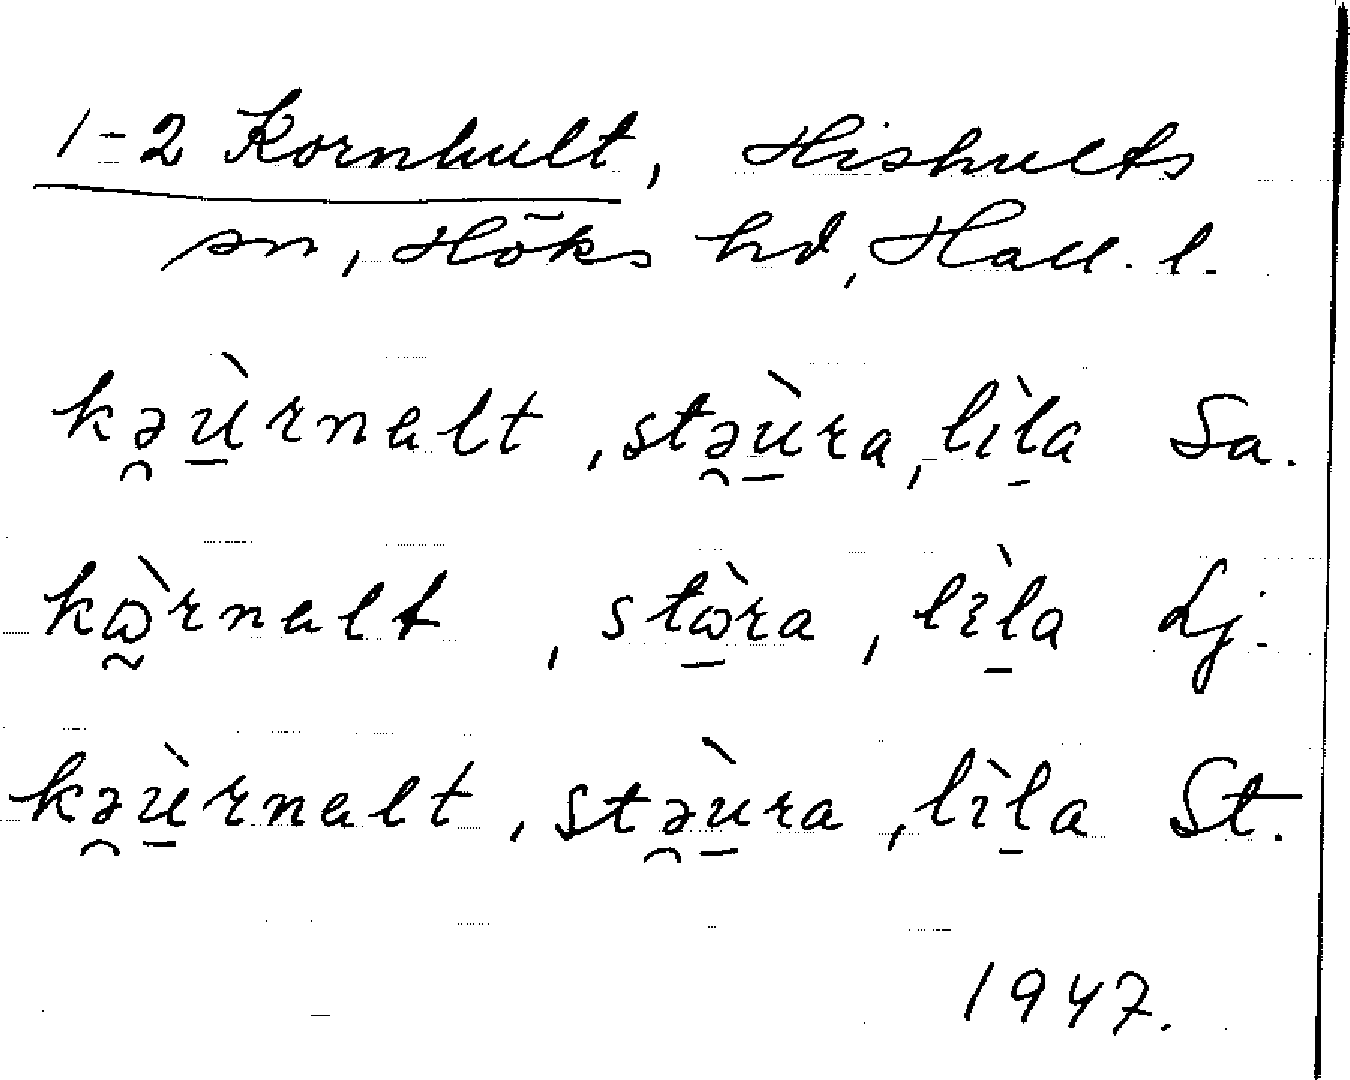 1-2 Kornhult, Hishults
sn, Höks hd, Hall. l.
kə̯ù̱rnalt, stə̯ù̱ra, lìḻa Sa.
kɷ̰̀rnalt, stɷ̱̀ra, lìḻa Lj.
kə̯ù̱rnalt, stə̯ù̱ra, lìḻa St.
1947.